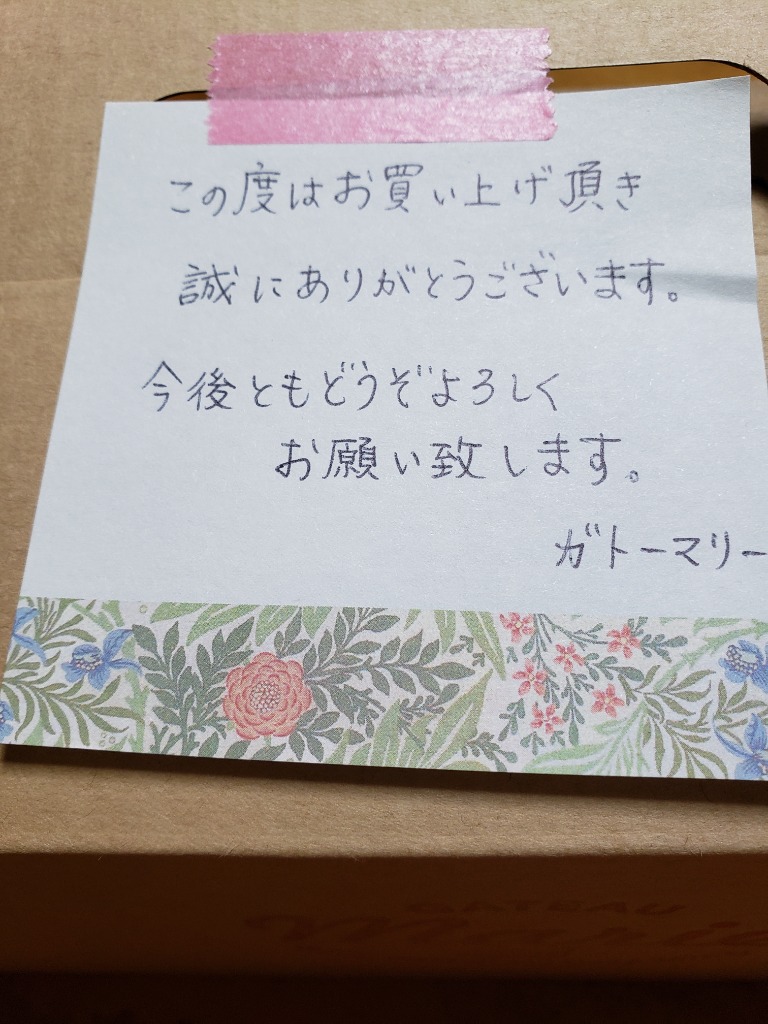 この度はお買い上げ頂き
誠にありがとうございます。
今後ともどうぞよろしく
お願い致します。
ガトーマリー
GATEAU
Marie